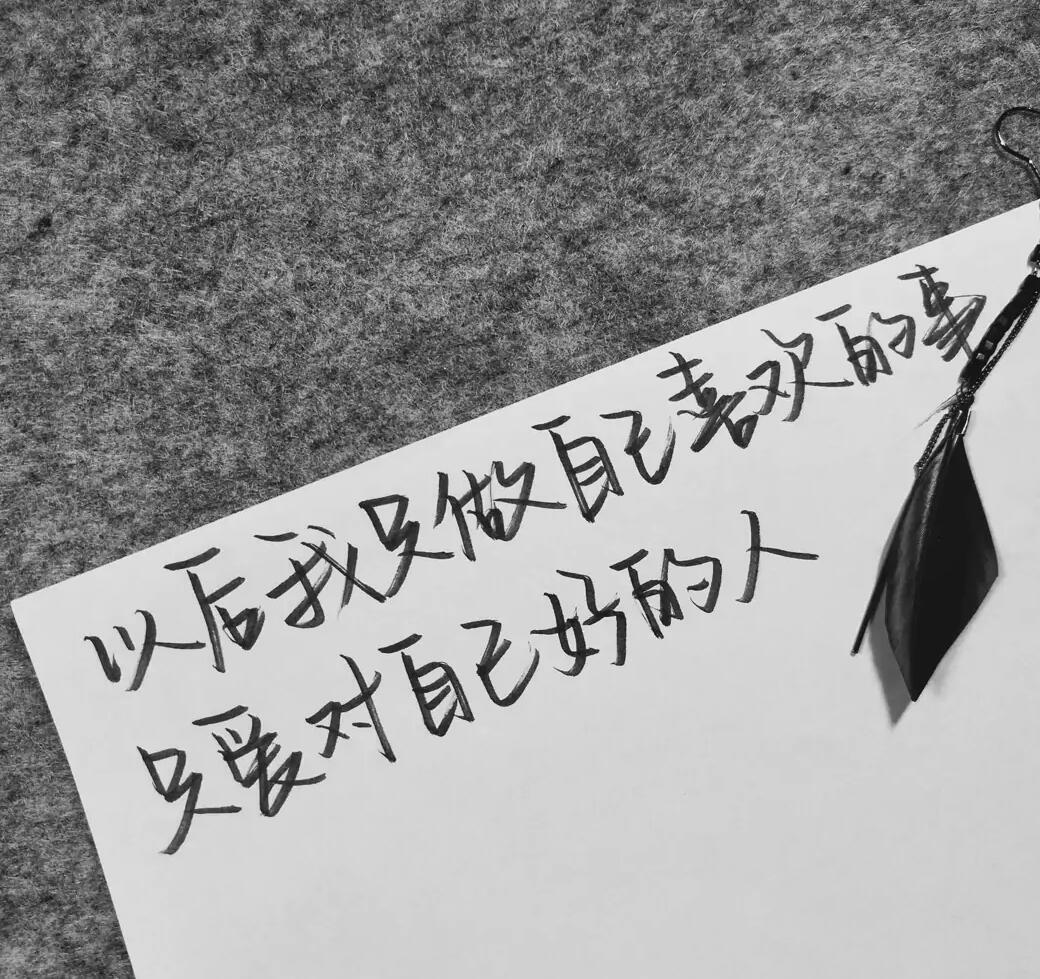 以后我只做自己喜欢的事
只爱对自己好的人